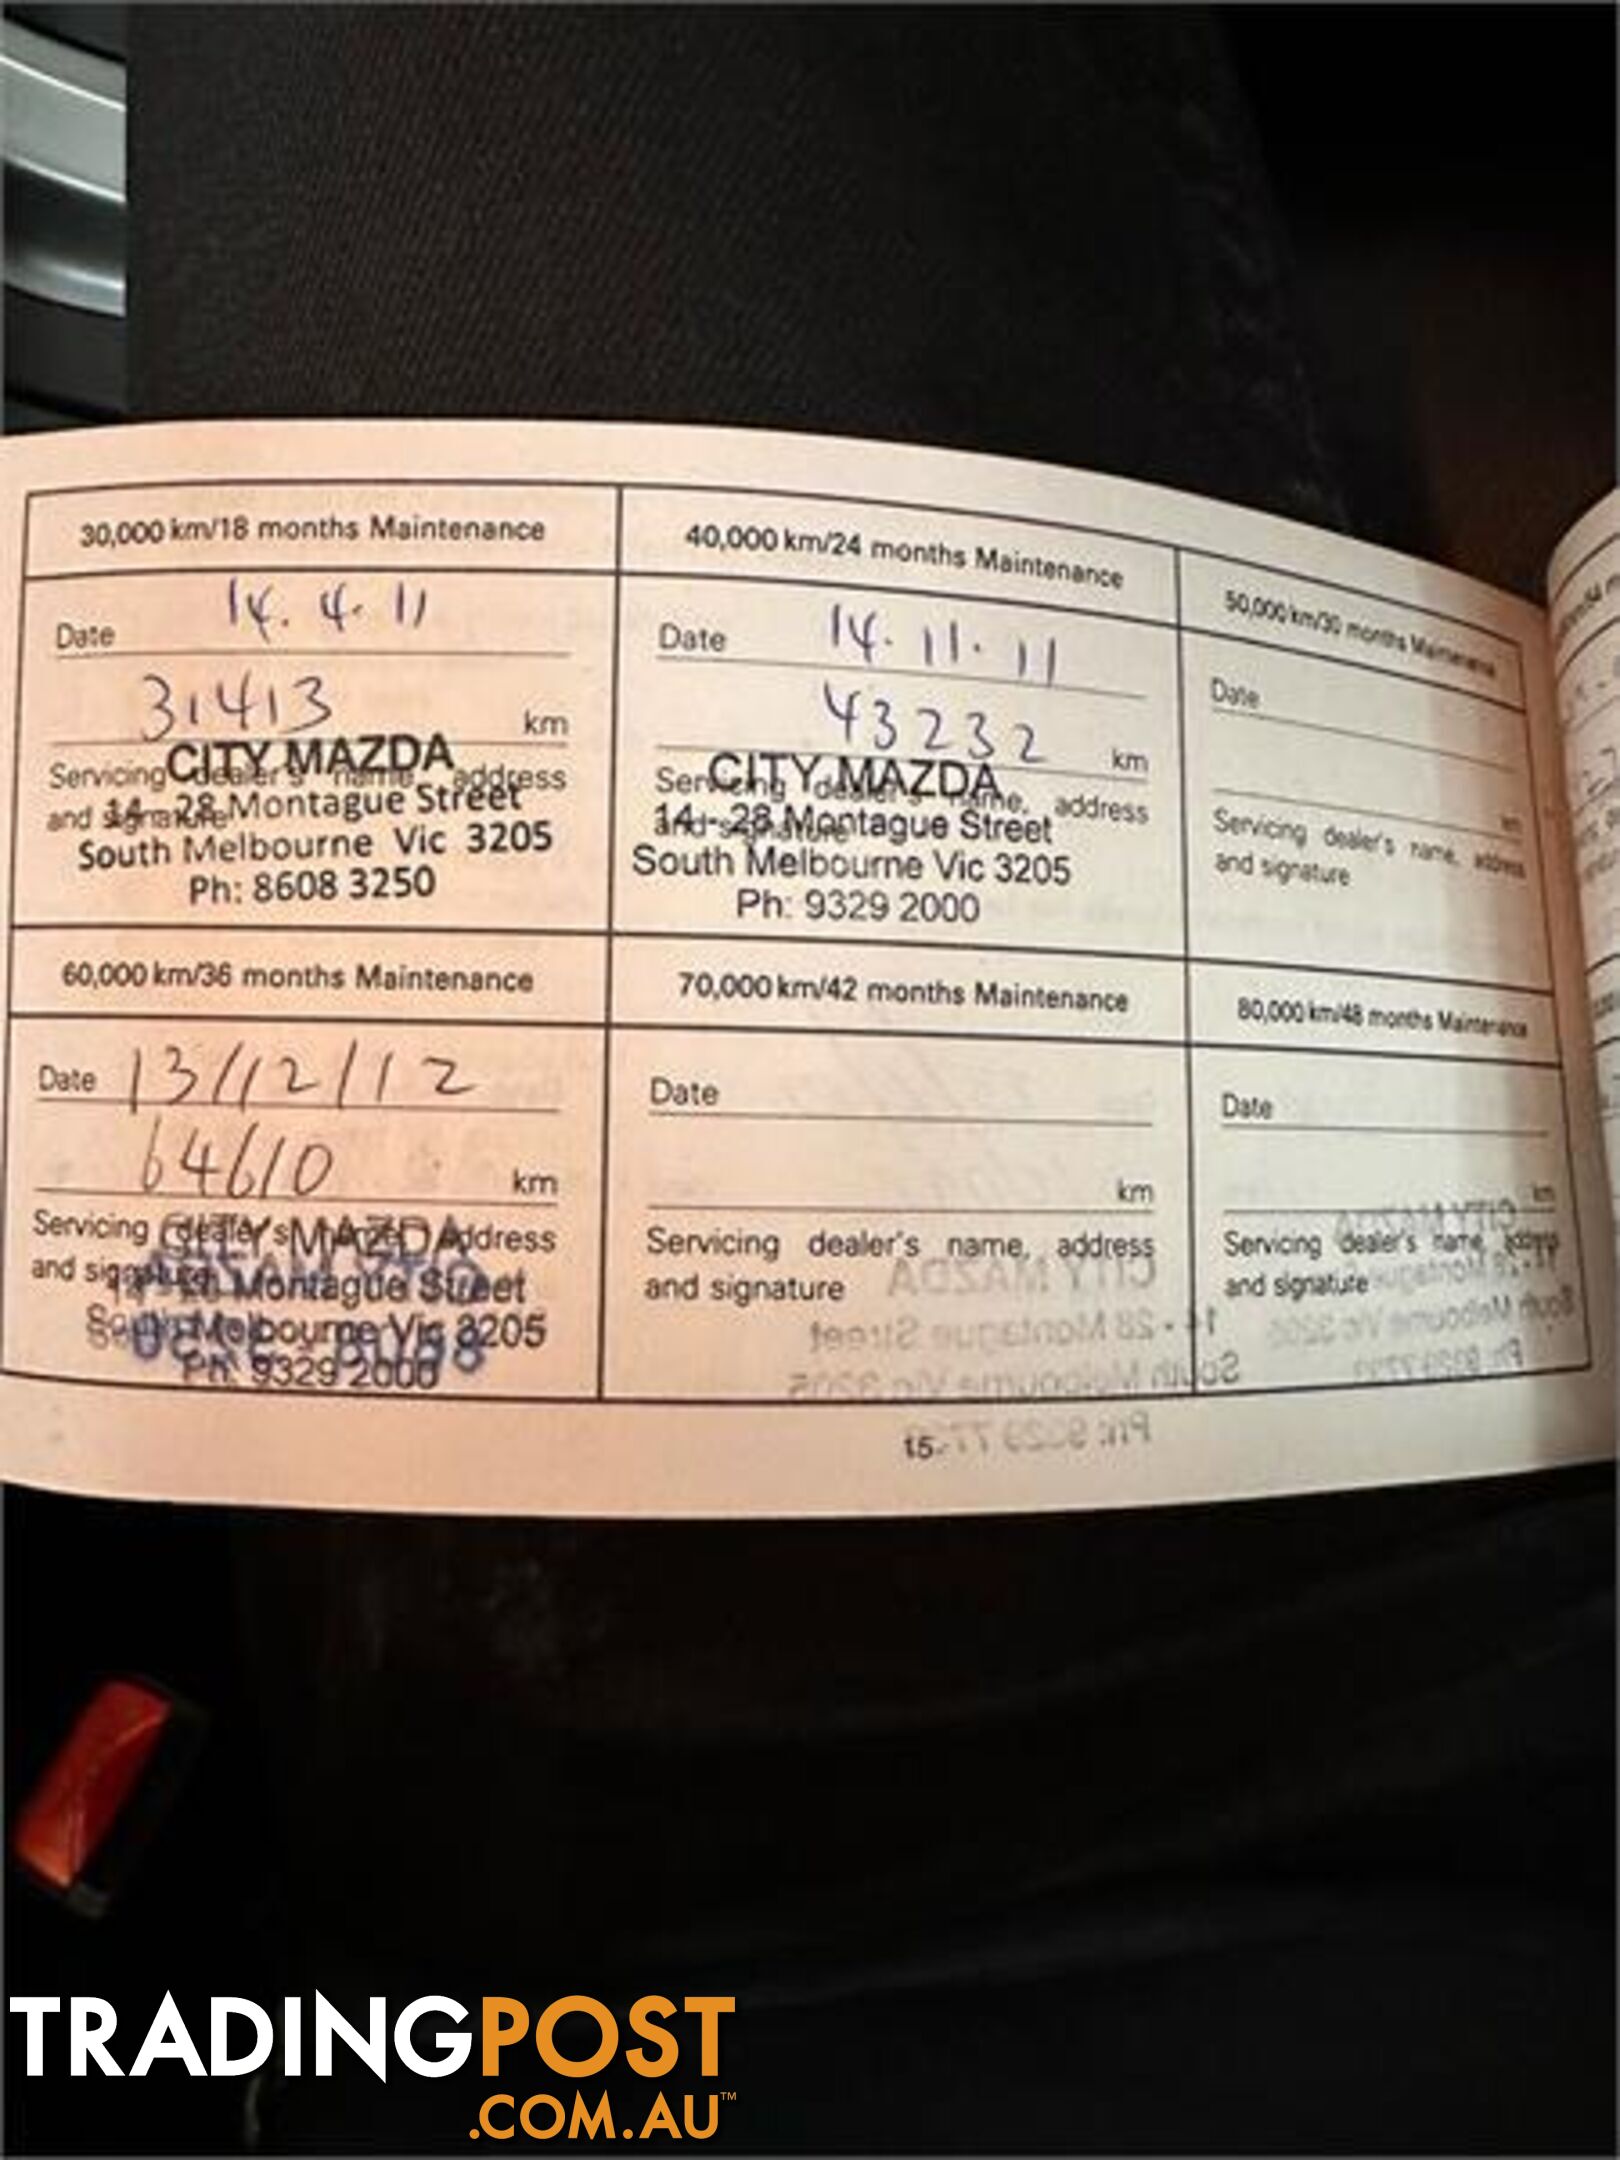 30,000 km/18 months Maintenance
Date 14.4.11
31413 km
Servicing dealer's name, address
and signature
CITY MAZDA
14 - 28 Montague Street
South Melbourne Vic 3205
Ph: 8608 3250
40,000 km/24 months Maintenance
Date 14.11.11
43232 km
Servicing dealer's name, address
and signature
CITY MAZDA
14 - 28 Montague Street
South Melbourne Vic 3205
Ph: 9329 2000
50,000 km/30 months Maintenance
Date
km
Servicing dealer's name, address
and signature
60,000 km/36 months Maintenance
Date 13/12/12
64610 km
Servicing dealer's name, address
and signature
CITY MAZDA
Montague Street
South Melbourne Vic 3205
Ph: 9329 2000
70,000 km/42 months Maintenance
Date
km
Servicing dealer's name, address
and signature
CITY MAZDA
14 - 28 Montague Street
South Melbourne Vic 3205
Ph: 9329 77
80,000 km/48 months Maintenance
Date
km
Servicing dealer's name, address
and signature
CITY MAZDA
Montague
South Melbourne Vic 3205
Ph: 9329 77
15
TRADINGPOST
.COM.AU™